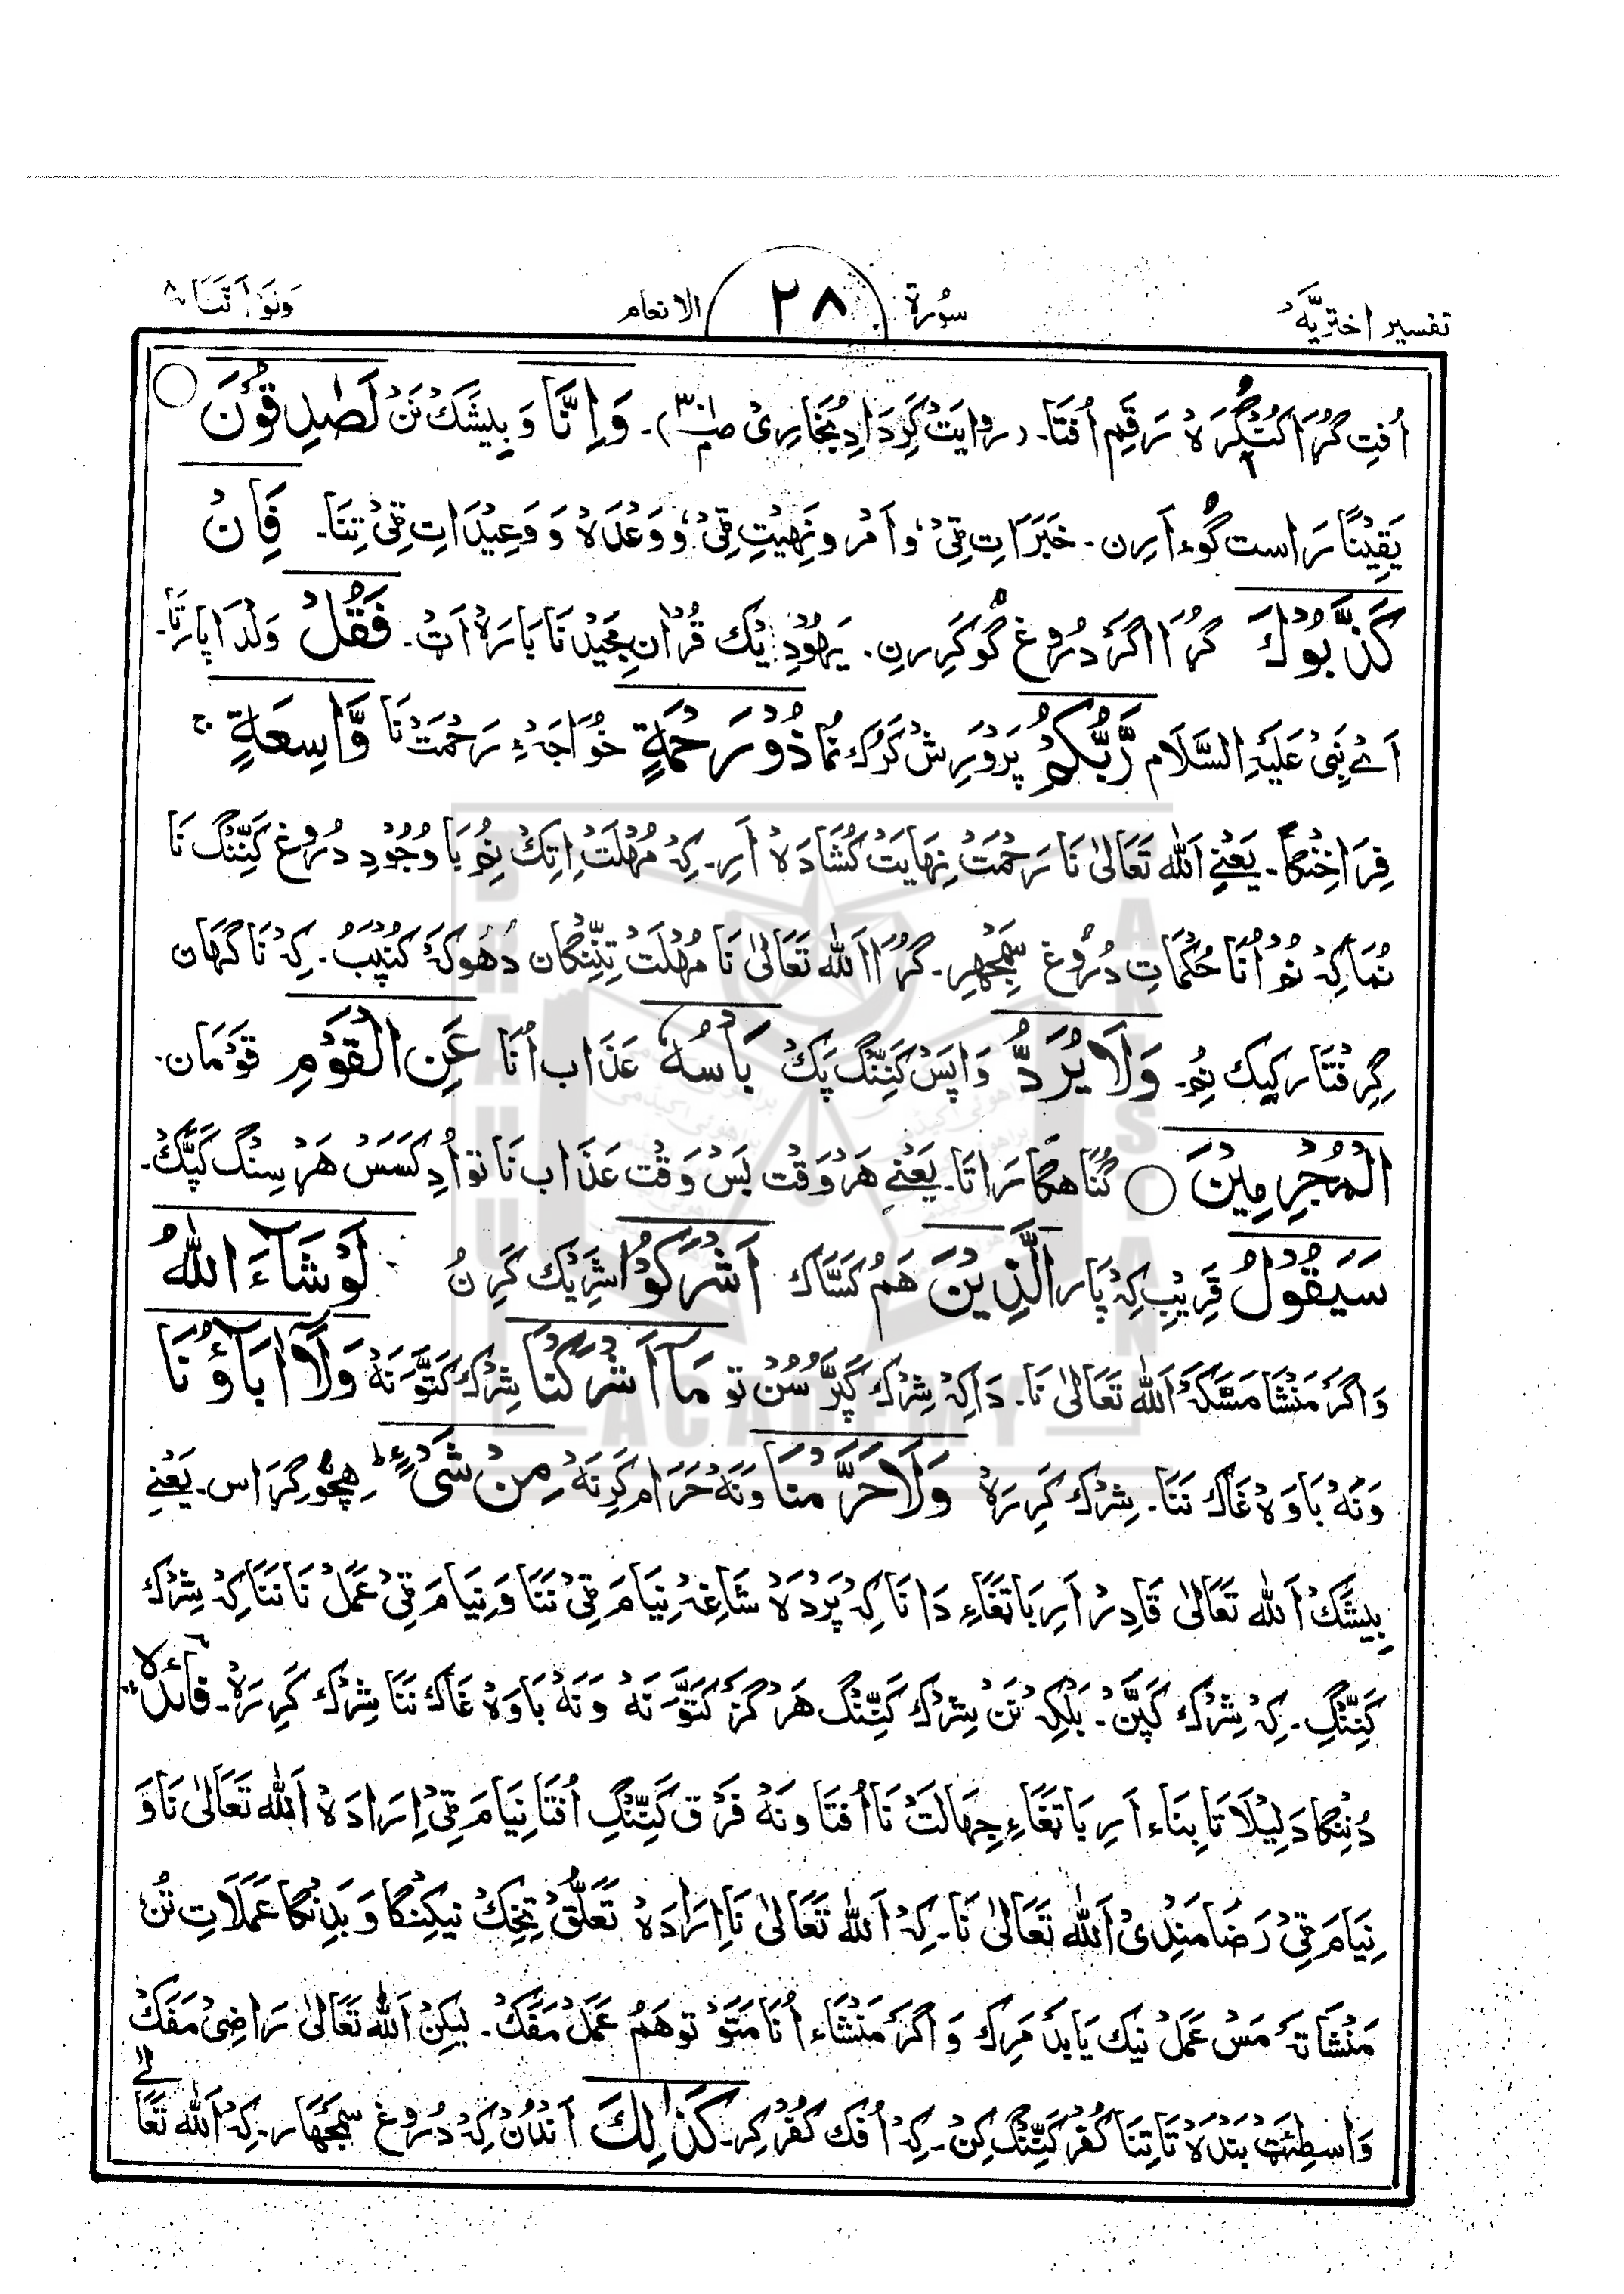 تفسیر اختریَّه
سُورة ٢٨ الانعام
وَنَوْ اَنَّنَا ٨
اُفتِ گُڑَا كُتِّگرَہ رَقَم اُفتَا۔ (رِوایَتْ كَرِ دَادِ بُخَارِیْ صـ ٣٠١)۔ وَاِنَّا وَبِیشَكْ نَنْ لَصٰدِقُوْنَ ○
یَقِیْنًا رَاست گُوءاَرِن۔ خَبَرَاتِ ٹِیْ، وَ اَمْر و نَهِیْتِ ٹِیْ، وَ وَعْدَہ وَ وَعِیْدَاتِ ٹِیْ تِنَا۔ فَاِنْ
كَذَّبُوْكَ گُڑَا اگَر دُرُوغ گو كَرِرنِ۔ یَهُوْدِیْك قُرْاٰنِ مَجِیْد نَا بَارَہ اَٹ۔ فَقُلْ وَلْدَا پَا رتَا۔
اَےْ نَبِیْ عَلَیْہِ السَّلَام رَّبُّكُمْ پَرْوَرِش كَرُك نُمَا ذُوْ رَحْمَةٍ خُوَاجَہءِ رَحْمَتْ نَا وَّاسِعَةٍ ج
فِرَاخِنْگَا۔ یَعْنِے اَللّٰه تَعَالیٰ نَا رَحْمَتْ نِهَایَتْ كُشَادَہ اَرِ۔ كِہ مُهْلَتْ اِتِكْ نُمِ بَا وُجُوْدِ دُرُوغ كَنِّنْگ نَا
نُمَا كِہ نُمْ اُنَا حُكْمَاتِ دُرُوغ سَمْجِهرِ۔ گُڑَا اَللّٰه تَعَالیٰ نَا مُهْلَتْ تِنِّنْگان دُهوكَہ كُنْپَبْ۔ كِہ نَاگَهَان
گِرِفْتَار كِیك نُمِ۔ وَلَا یُرَدُّ وَاپَسْ كَنِّنْگ پَكْ بَاْسُهٗ عَذَاب اُنَا عَنِ الْقَوْمِ قَوْمَان۔
الْمُجْرِمِیْنَ ○ گُنَاهگَارَاتَا۔ یَعْنِے هَرْ وَقْت بَسْ وَقْت عَذَاب نَا تو اُدِ كَسَسْ هَرْسِنْگ كَپَّكْ۔
سَیَقُوْلُ قَرِیْب كِہ پَار الَّذِیْنَ هَمُ كَسَّاك اَشْرَكُوْا شَرِیْك كَرِنُ لَوْ شَآءَ اللّٰهُ
وَاگَر مَنْشَا مَسَّكَہ اَللّٰه تَعَالیٰ نَا۔ دَاكِہ شِرْك كَپَّرُسُنْ تو مَآ اَشْرَكْنَا شِرْك كَتَّوَنَہ وَلَآ اٰبَآؤُنَا
وَنَہ بَاوَہ غَاك نَنَا۔ شِرْك كَرِرَہ وَلَا حَرَّمْنَا وَنَہ حَرَام كَرِنَہ مِنْ شَیْءٍ ط هِچُّو گِرَاس۔ یَعْنِے
بِیشَّكْ اَللّٰه تَعَالیٰ قَادِرْ اَرِ بَاتَفَاءِ دَانَا كِہ پَرْدَہ شَاغِہ نِیَام ٹِیْ نَنَا وَ نِیَام ٹِیْ عَمَلْ نَا نَنَا كِہ شِرْك
كَنِّنْگِ۔ كِہ شِرْك كَپَّنْ۔ بَلْكِہ نَنْ شِرْك كَنِّنْگ هَرْگَزْ كَتَّوَنَہ وَنَہ بَاوَہ غَاك نَنَا شِرْك كَرِرَہ۔ فَائدہ
دُنِنْگَا دَلِیْلَاتَا بِنَاء اَرِ بَاتَفَاءِ جِهَالَتْ نَا اُفتَا وَنَہ فَرْق كَنِّنْگِ اُفتَا نِیَام ٹِیْ اِرَادَہ اَللّٰه تَعَالیٰ نَا وَ
نِیَام ٹِیْ رَضَامَنْدِیْ اَللّٰه تَعَالیٰ نَا۔ كِہ اَللّٰه تَعَالیٰ نَا اِرَادَہ تَعَلُّقْ تِخِكْ نیكِنْگَا وَ بَدِنْگَا عَمَلَاتِ تُن
مَنْشَا تہ مَسْ عَمَلْ نیك یَا بَد مَرِك وَ اگَر مَنْشَاء اُنَا مَتَوْ تو هَمُ عَمَلْ مَفَكْ۔ لٰیكِنْ اَللّٰه تَعَالیٰ رَاضِیْ مَفَكْ
وَاسِطئَٹ بَنْدَہ تَاتِنَا كُفْر كَنِّنْگ كِن۔ كِہ اُفك كُفْر كِر۔ كَذٰلِكَ اَنْدُنْ كِہ دُرُوغ سَمْجَهار۔ كِہ اَللّٰه تَعَالےٰ
BRAHUI
ARISTAN
ACADEMY